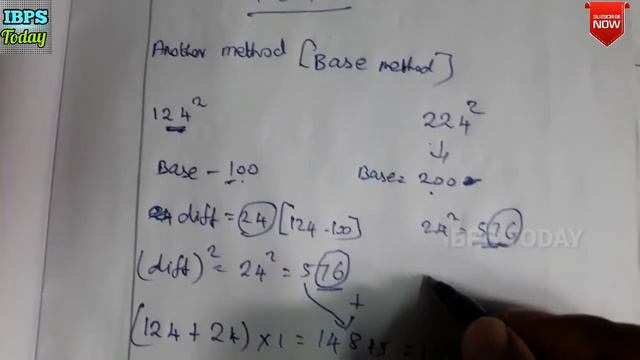 IBPS
Today
SUBSCRIBE
NOW
Another method [Base method]
124²
224²
↓
Base - 100
Base = 200
diff = 24 [124 - 100]
24² = 576
IBPS TODAY
(diff)² = 24² = 576
+
(124 + 24) × 1 = 148+5 =